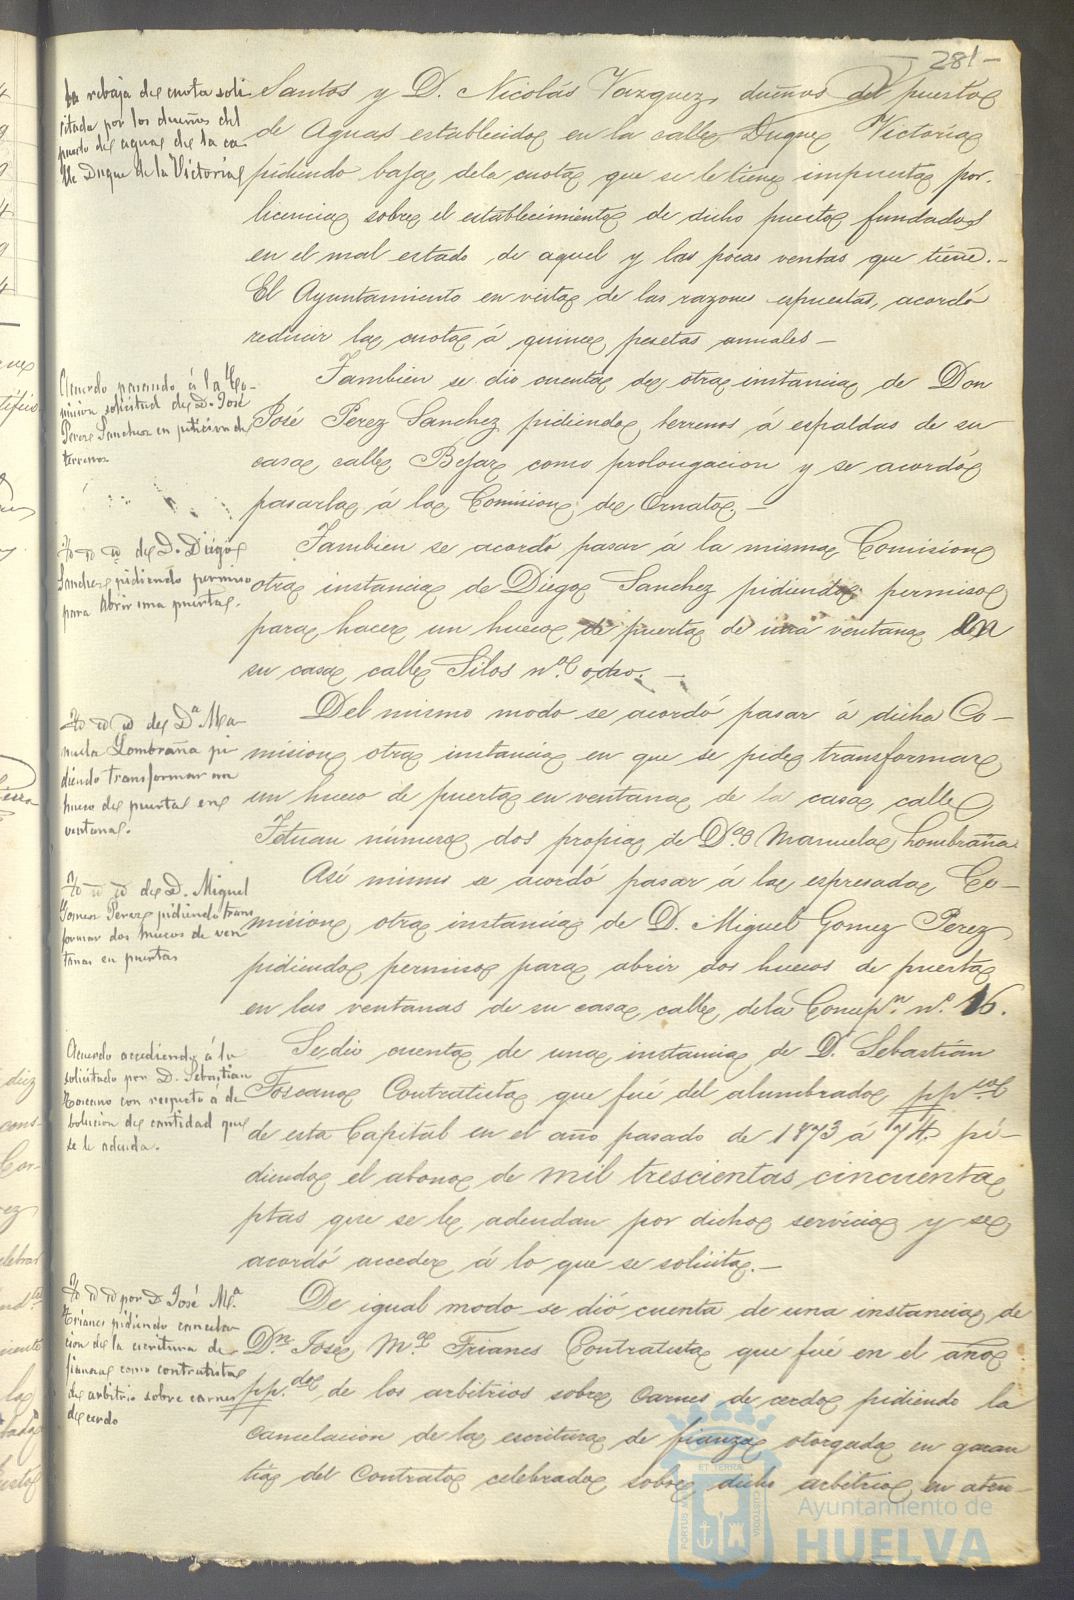 281-
la rebaja de cuota soli-
citada por los dueños del
puesto de aguas de la ca-
lle Duque de la Victoria
Santos y D. Nicolás Vazquez, dueños del puesto
de Aguas establecido en la calle Duque Victoria
pidiendo baja dela cuota que se le tiene impuesta por
licencia sobre el establecimiento de dicho puesto fundados
en el mal estado de aquel y las pocas ventas que tiene.-
El Ayuntamiento en vista de las razones espuestas, acordó
reducir la cuota á quince pesetas anuales-
Acuerdo pasando á la Co-
mision solicitud de D. José
Perez Sanchez en peticion de
terrenos
Tambien se dio cuenta de otra instancia de Don
José Perez Sanchez pidiendo terrenos á espaldas de su
casa calle Bejar como prolongacion y se acordó
pasarla á la Comision de Ornato.-
Yd id id de D. Diego
Sanchez pidiendo permiso
para abrir una puerta.
Tambien se acordó pasar á la misma Comision
otra instancia de Diego Sanchez pidiendo permiso
para hacer un hueco de puerta de una ventana en
su casa calle Silos nº ocho.-
Yd id id de Dª Ma-
nuela Lombraña pi-
diendo transformar un
hueco de puerta en
ventana.
Del mismo modo se acordó pasar á dicha Co-
mision otra instancia en que se pide transformar
un hueco de puerta en ventana de la casa calle
Tetuan número dos propia de Dª Manuela Lombraña
Yd id id de D. Miguel
Gomez Perez pidiendo trans
formar dos huecos de ven
tanas en puertas
Asi mismo se acordó pasar á la espresada Co-
mision otra instancia de D. Miguel Gomez Perez
pidiendo permiso para abrir dos huecos de puerta
en las ventanas de su casa calle dela Concepn. nº 16.
Acuerdo accediendo á lo
solicitado por D. Sebastian
Toscano con respecto á de
bolucion de cantidad que
se le adeuda.
Se dio cuenta de una instancia de D. Sebastian
Toscano Contratista que fué del alumbrado ppcal
de esta Capital en el año pasado de 1873 á 74. pi-
diendo el abono de mil trescientas cincuenta
ptas que se le adeudan por dicho servicio y se
acordó acceder á lo que se solicita.-
Yd id id por D José Mª
Trianes pidiendo cancela-
cion de la escritura de
fianza como contratista
de arbitrio sobre carnes
de cerdo
De igual modo se dió cuenta de una instancia de
Dn José Mª Trianes Contratista que fué en el año
ppdo de los arbitrios sobre carnes de cerdo pidiendo la
cancelacion de la escritura de fianza otorgada en garan
tia del contrato celebrado sobre dicho arbitrio en aten-
PORTUS MARIS ET TERRAE CUSTODIA
Ayuntamiento de
HUELVA